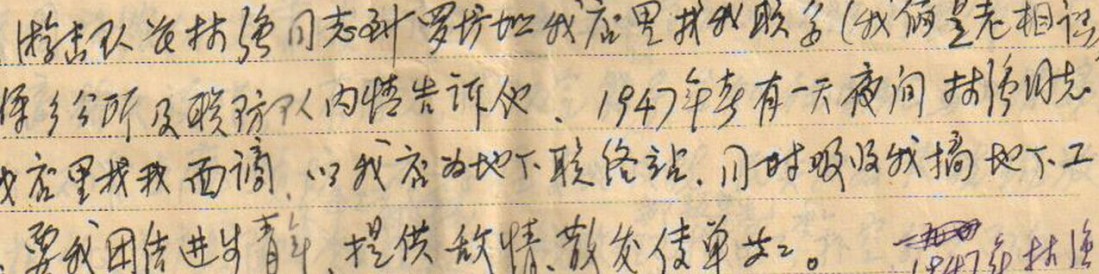 游击队首林强同志到罗坊墟我店里找我联系(我俩是老相识
乡公所及联防队内情告诉他、1947年春有一天夜间林强同志
我店里找我面谪、以我店为地下联络站、同时吸收我搞地下工
要我团结进步青年、提供敌情、散发传单等。1947年林强